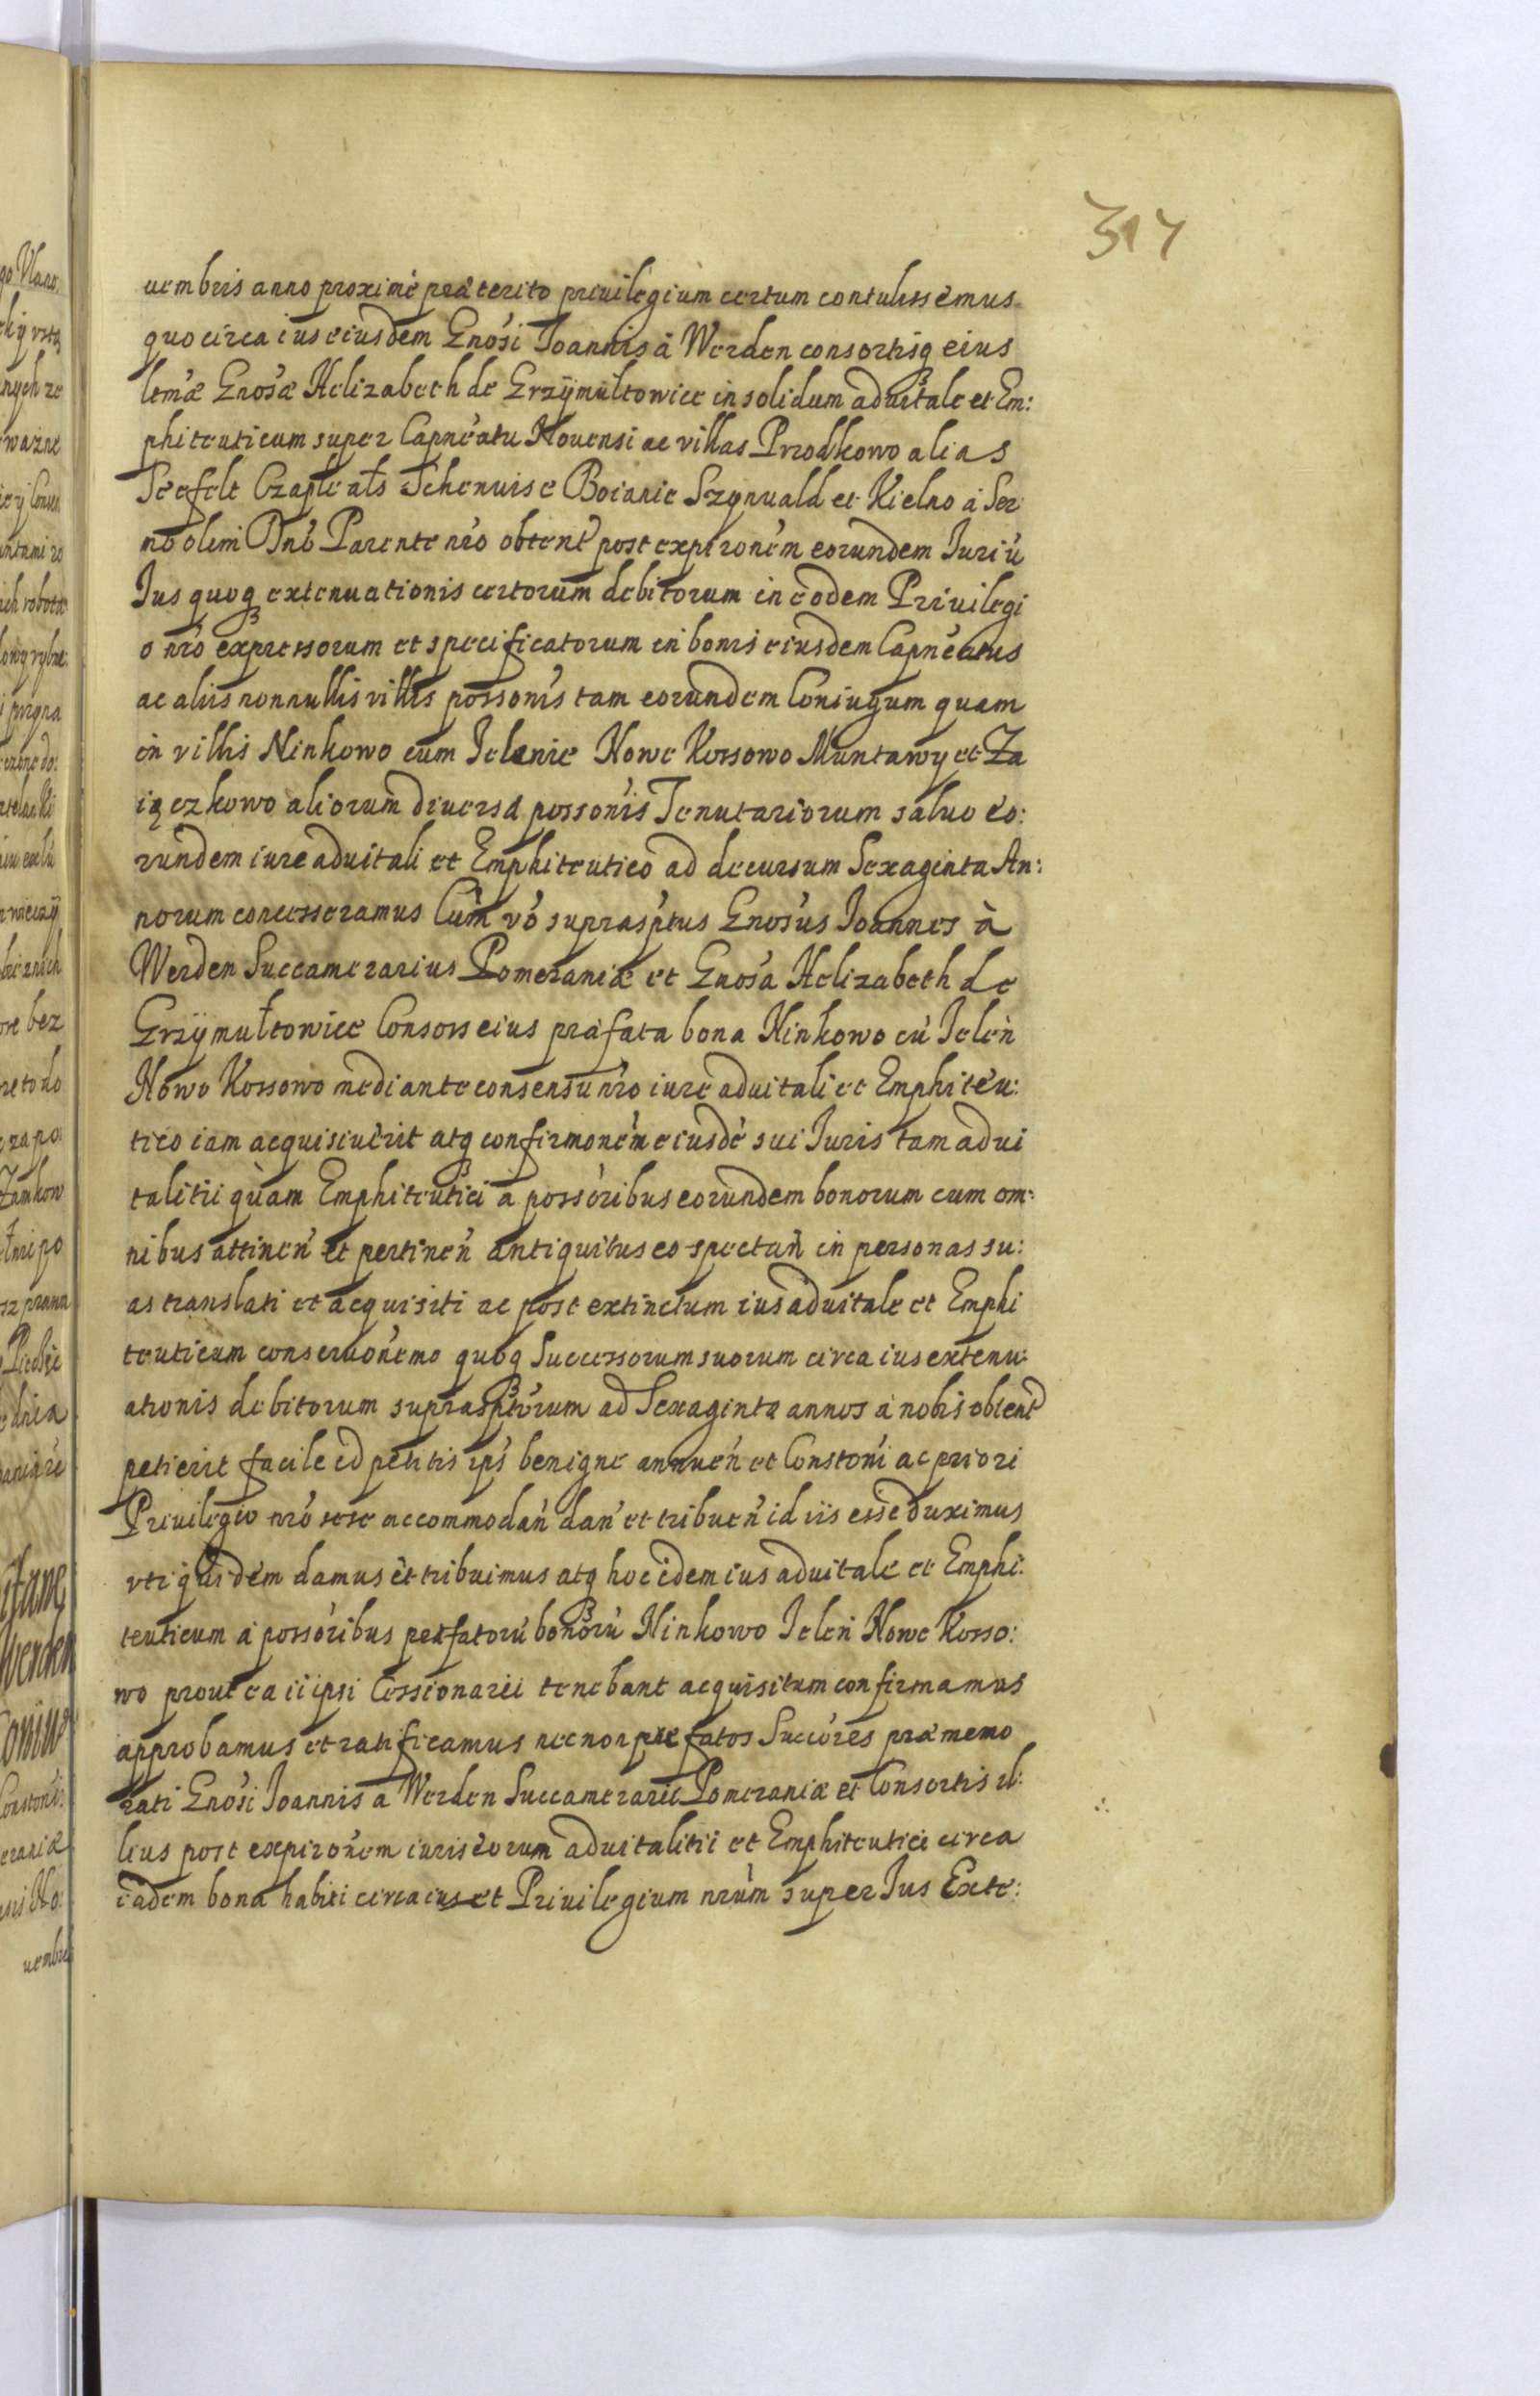 317
uembris anno proximè præterito priuilegium certum contulissemus
quo circa ius eiusdem Gnosi Joannis à Werden consortisq eius
lemæ Gnosæ Helizabeth de Grzÿmułtowicc in solidum aduitale et Em:
phiteuticum super Capneatu Nouensi ac villas Przodkowo alias
Seefelt Czaple als Schenuise Boianie Szynuald et Kielno à Ser
no olim Dno Parente nro obtent post expironem eorundem Juriu
Jus quoq extenuationis certorum debitorum in eodem Priuilegi
o nro expressorum et specificatorum in bonis eiusdem Capneatus
ac aliis nonnullis villis possonis tam eorundem Coniugum quam
in villis Ninkowo cum Jelenie Nowe Kossowo Muntawy et Za
iączkowo aliorum diuersæ possonis Tenutariorum saluo eo:
rundem iure aduitali et Emphiteutico ad decursum Sexaginta An:
norum concesseramus Cum vo suprasptus Gnosus Joannes à
Werden Succamerarius Pomeraniæ et Gnosa Helizabeth de
Grzÿmułtowicc Consors eius præfata bona Ninkowo cu Jelen
Nowo Kossowo mediante consensu nro iure aduitali et Emphiteu:
tico iam acquisiuerit atq confirmonem eiusde sui Juris tam adui
talitii quàm Emphiteutici à possoribus eorundem bonorum cum om:
nibus attinen et pertinen antiquitus eo spectan in personas su:
as translati et acquisiti ac post extinctum ius aduitale et Emphi
teuticum conseruonemo quoq Successorum suorum circa ius extenu:
ationis debitorum suprasptorum ad Sexaginta annos à nobis obtent
petierit facile id petitis ips benigne annuen et Constoni ac priori
Priuilegio nro sese accommodan dan et tribuen id iis esse duximus
vti quidem damus et tribuimus atq hoc idem ius aduitale et Emphi:
teuticum à possoribus præfatoru bonoru Ninkowo Jelen Nowe Kosso:
wo prout ea ii ipsi Cessionarii tenebant acquisitum confirmamus
approbamus et ratificamus necnon præfatos Succores præmemo
rati Gnosi Joannis a Werden Succamerarii Pomeraniæ et Consortis il:
lius post expironem iuris eorum aduitalitii et Emphiteutici circa
eadem bona habiti circa ius et Priuilegium nrum super Jus Exte: